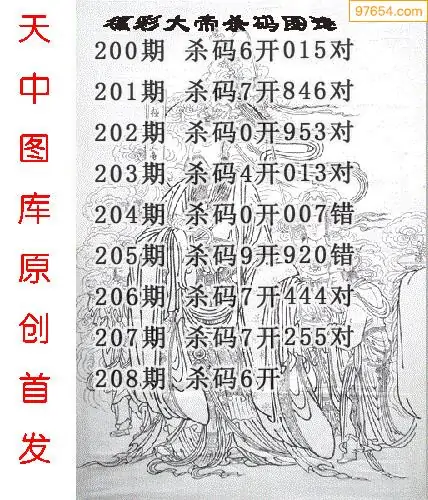 97654.com
福彩大帝杀码图谜
200期 杀码6开015对
201期 杀码7开846对
202期 杀码0开953对
203期 杀码4开013对
204期 杀码0开007错
205期 杀码9开920错
206期 杀码7开444对
207期 杀码7开255对
208期 杀码6开
天中图库原创首发